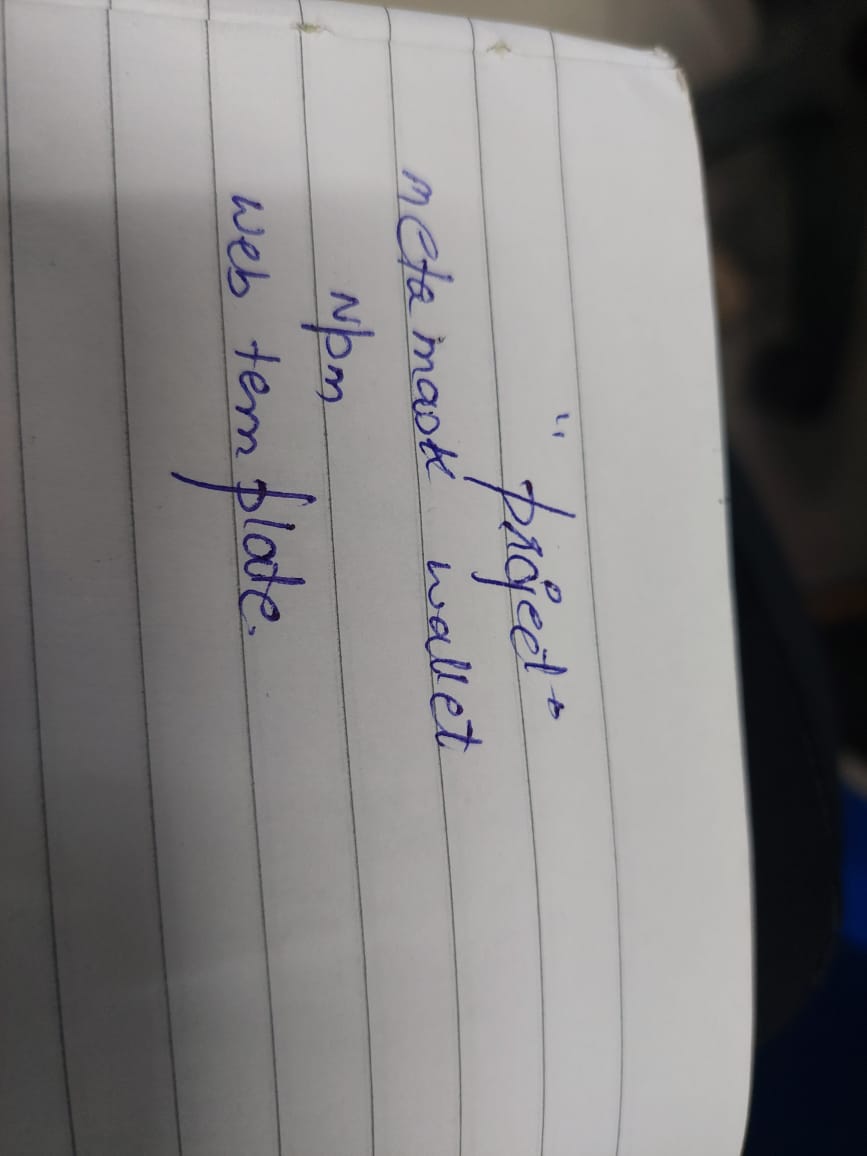 "project"
metamask wallet
Npm
web template.